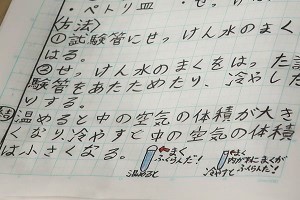 ・ペトリ皿 ・せっけ
〈方法〉
①試験管にせっけん水のまく
はる。
②せっけん水のまくをはった試
験管をあたためたり、冷やした
りする。
温めると中の空気の体積が大き
くなり、冷やすと中の空気の体積
は小さくなる。
まく
ふくらんだ!
温めると
まく
内がわにまくが
ふくらんだ!
冷やすと